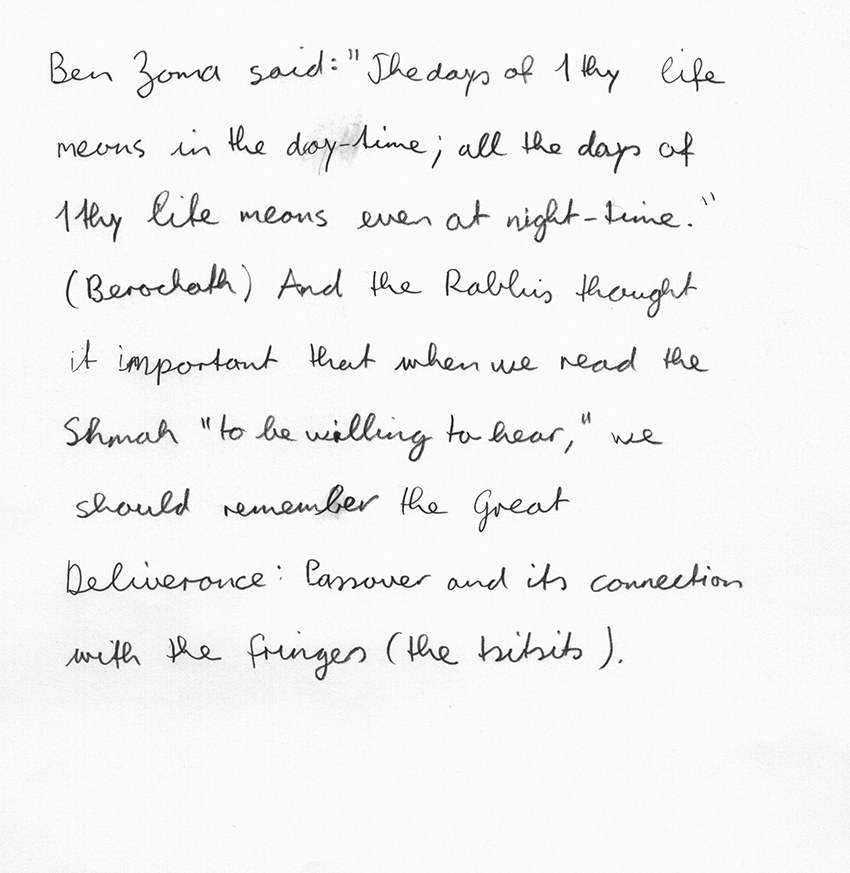 Ben Zoma said: "The days of 1 thy life
means in the day-time; all the days of
1 thy life means even at night-time."
(Berochath) And the Rabbis thought
it important that when we read the
Shmah "to be willing to hear," we
should remember the Great
Deliverance: Passover and its connection
with the fringes (the tsitsits).